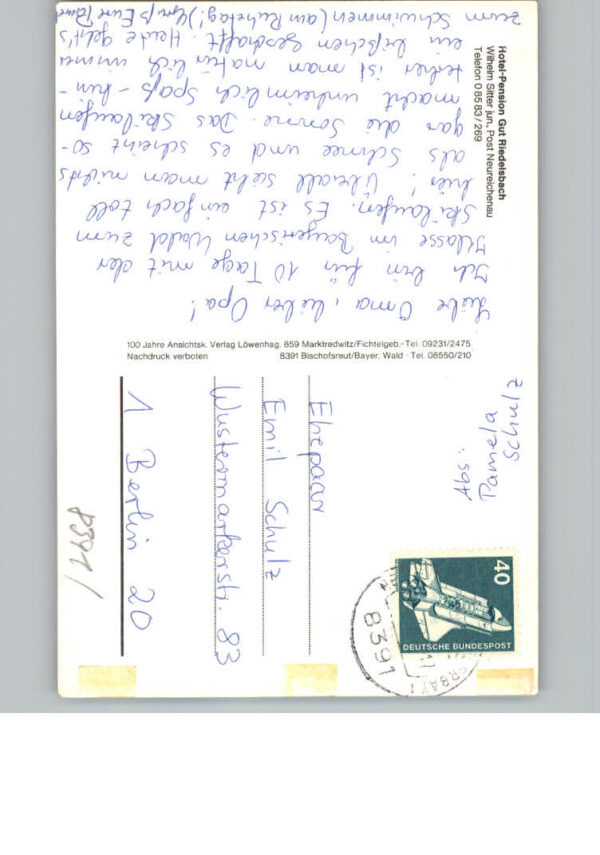 Hotel-Pension Gut Riedelsbach
Wilhelm Sitter jun., Post Neureichenau
Telefon 0 85 83 / 269
Liebe Oma, lieber Opa!
Ich bin für 10 Tage mit der
Klasse im Bayerischen Wald zum
Skilaufen. Es ist einfach toll
hier! Überall sieht man nichts
als Schnee und es scheint so-
gar die Sonne. Das Skilaufen
macht unheimlich Spaß - hin-
terher ist man natürlich immer
ein bißchen geschafft. Heute geht's
zum Schwimmen (am Ruhetag!) Eure
100 Jahre Ansichtsk. Verlag Löwenhag, 859 Marktredwitz/Fichtelgeb.-Tel. 09231/2475
Nachdruck verboten 8391 Bischofsreut/Bayer. Wald · Tel. 08550/210
Abs.:
Pamela
Schulz
40
DEUTSCHE BUNDESPOST
8391
Ehepaar
Emil Schulz
Wustermarkerstr. 83
1 Berlin 20